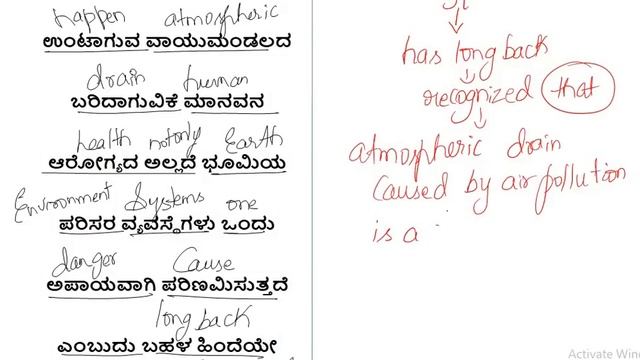 happen atmospheric
ಉಂಟಾಗುವ ವಾಯುಮಂಡಲದ
drain human
ಬರಿದಾಗುವಿಕೆ ಮಾನವನ
health not only Earth
ಆರೋಗ್ಯದ ಅಲ್ಲದೆ ಭೂಮಿಯ
Environment Systems one
ಪರಿಸರ ವ್ಯವಸ್ಥೆಗಳು ಒಂದು
danger Cause
ಅಪಾಯವಾಗಿ ಪರಿಣಮಿಸುತ್ತದೆ
long back
ಎಂಬುದು ಬಹಳ ಹಿಂದೆಯೇ
has long back
recognized that
atmospheric drain
Caused by air pollution
is a
Activate Win